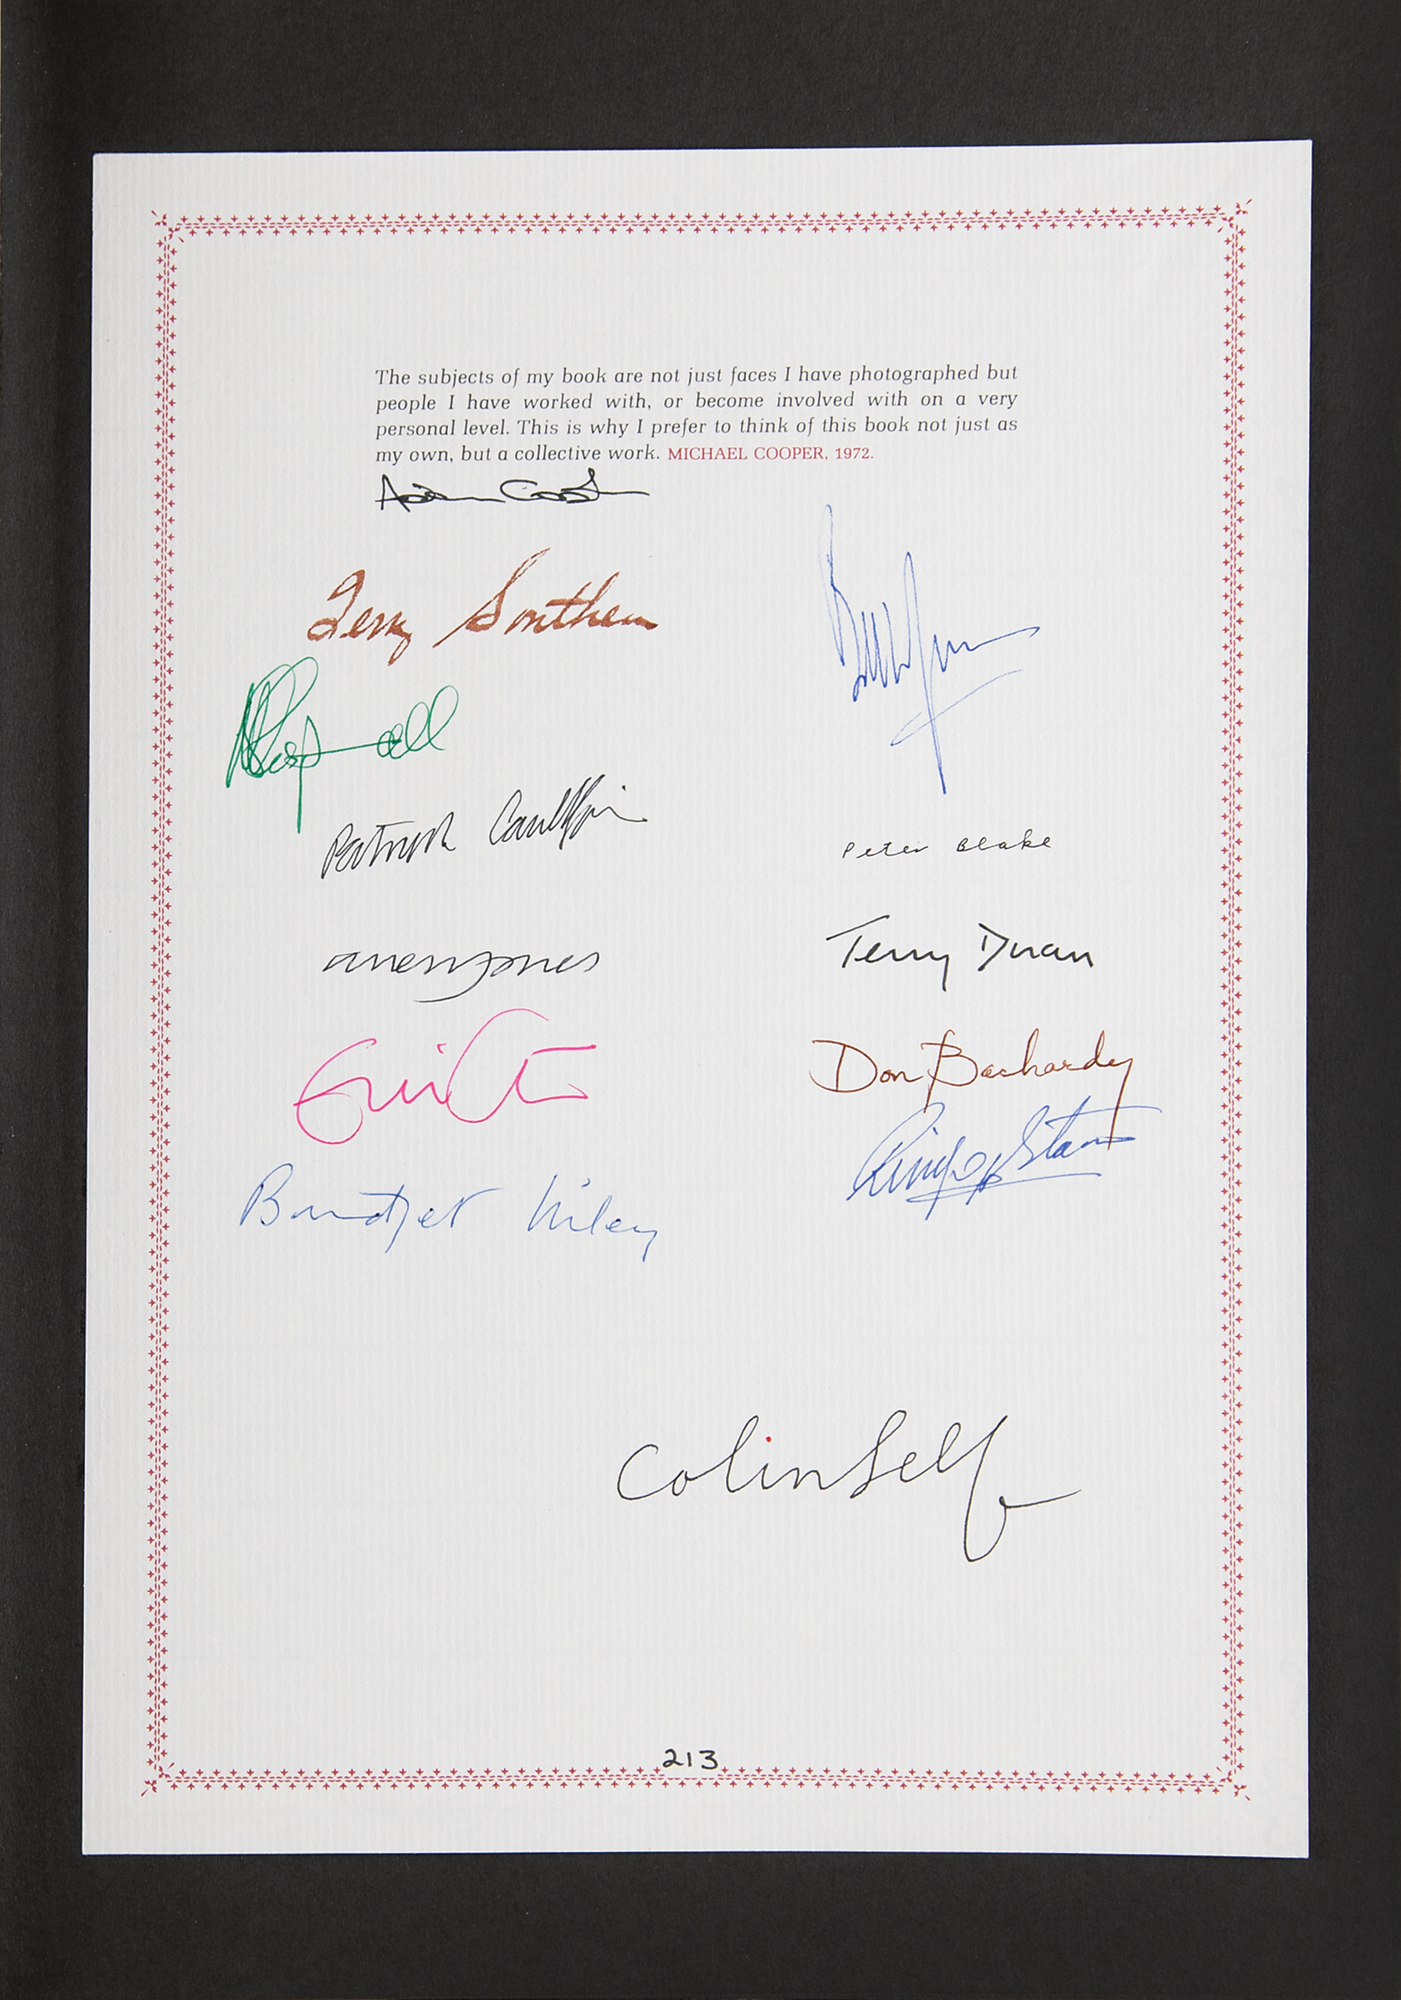 The subjects of my book are not just faces I have photographed but
people I have worked with, or become involved with on a very
personal level. This is why I prefer to think of this book not just as
my own, but a collective work. MICHAEL COOPER, 1972.
Adam Cooper
Terry Southern
Patrick Caulfield
Peter Blake
Terry Doran
Don Bachardy
Ringo Starr
Bridget Riley
Colin Self
213